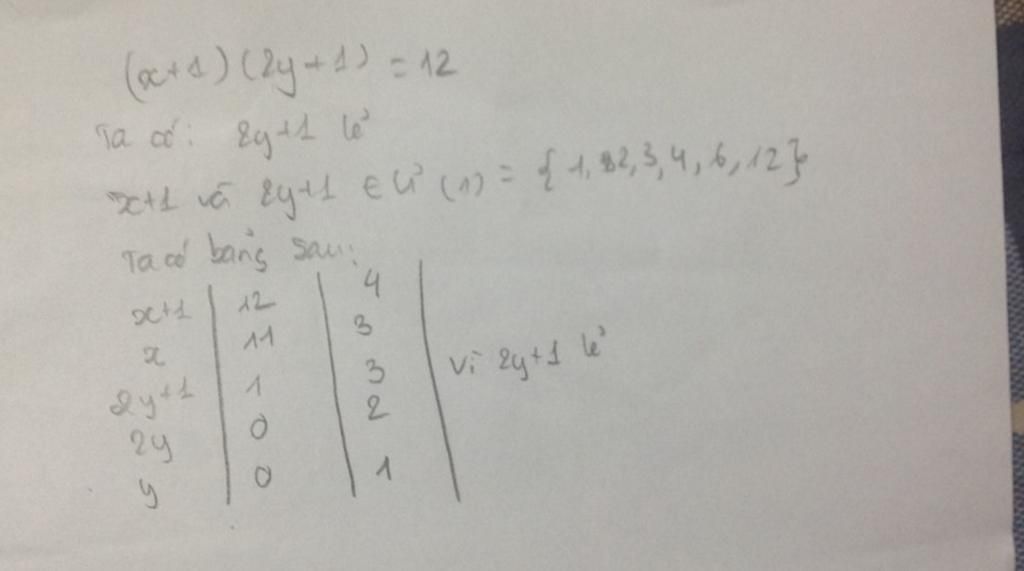 (x+1)(2y+1) = 12
Ta có: 2y+1 lẻ
x+1 và 2y+1 ∈ Ư (1) = {1, 2, 3, 4, 6, 12}
Ta có bảng sau:
x+1 | 12 | 4 |
x | 11 | 3 | vì 2y+1 lẻ
2y+1 | 1 | 3 |
2y | 0 | 2 |
y | 0 | 1 |